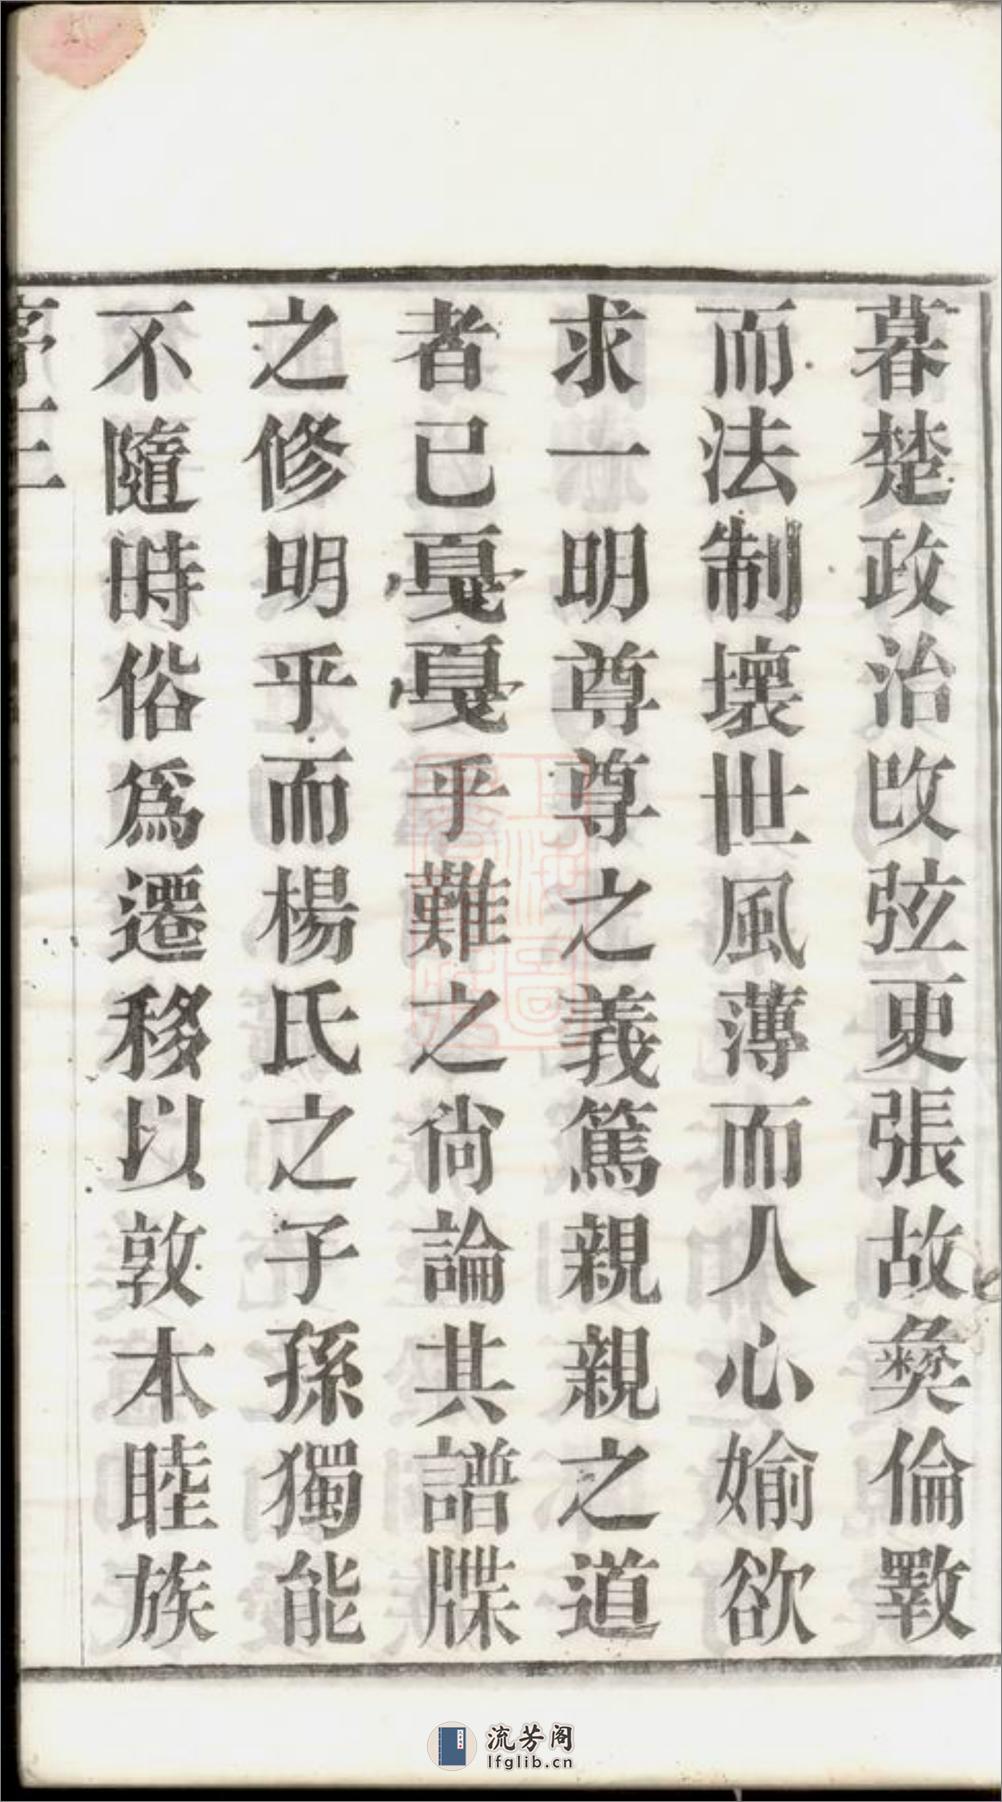 暮楚政治改弦更張故彝倫斁
而法制壞世風薄而人心媮欲
求一明尊尊之義篤親親之道
者已戞戞乎難之尙論其譜牒
之修明乎而楊氏之子孫獨能
不隨時俗爲遷移以敦本睦族
序 三
流芳阁
lfglib.cn